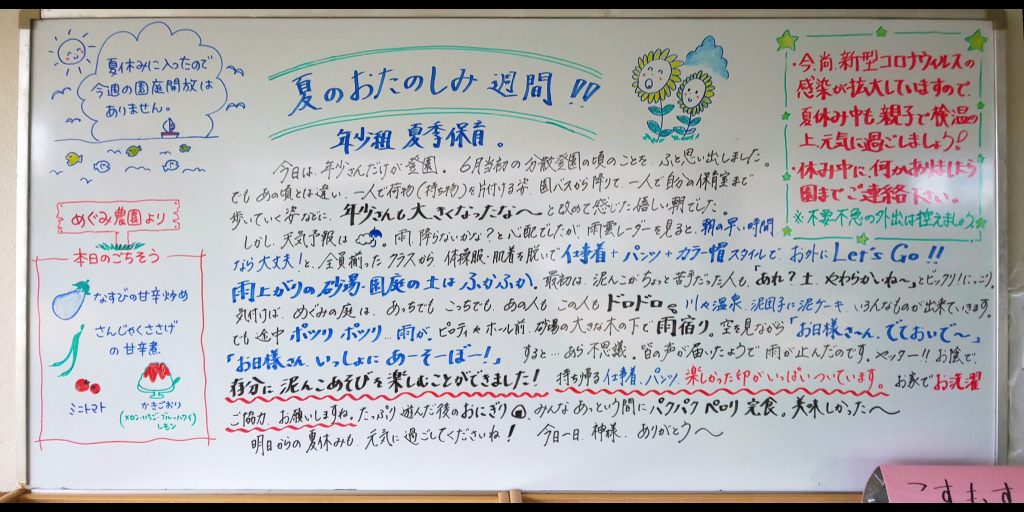 夏休みに入ったので
今週の園庭開放は
ありません。
夏のおたのしみ週間!!
年少組 夏季保育。
今日は、年少さんだけが登園。6月当初の分散登園の頃のことを、ふと思い出しました。
でもあの頃とは違い、一人で荷物(持ち物)を片付ける姿、園バスから降りて、一人で自分の保育室まで
歩いていく姿などに、年少さんも大きくなったな〜と改めて感じた嬉しい朝でした。
しかし、天気予報は 。雨、降らないかな?と心配でしたが、雨雲レーダーを見ると、朝の早い時間
なら大丈夫!と、全員揃ったクラスから、体操服・肌着を脱いで仕事着+パンツ+カラー帽スタイルで、お外にLet's Go!!
雨上がりの砂場・園庭の土はふかふか。最初は、泥んこがちょっと苦手だった人も、「あれ?土、やわらかいね〜」とビックリ!にっこり。
気付けば、めぐみの庭は、あっちでもこっちでも、あの人もこの人もドロドロ。川や温泉、泥団子に泥ケーキ、いろんなものが出来ていきます。
でも途中ポツリポツリ、雨が。ピロティやホール前、砂場の大きな木の下で雨宿り。空を見ながら「お日様さ〜ん、でておいで〜」
「お日様さん、いっしょにあーそーぼー!」 すると…あら不思議。皆の声が届いたようで雨が止んだのです。ヤッター!!お陰で、
存分に泥んこあそびを楽しむことができました! 持ち帰る仕事着、パンツ、楽しかった印がいっぱいついています。お家でお洗濯
ご協力、お願いしますね。たっぷり遊んだ後のおにぎり 、みんなあっという間にパクパクペロリ完食。美味しかった〜
明日からの夏休みも、元気に過ごしてくださいね! 今日一日、神様、ありがとう〜
・今尚、新型コロナウィルスの
感染が拡大していますので、
夏休み中も、親子で検温の
上、元気に過ごしましょう!
・休み中に、何かありましたら
園までご連絡下さい。
※不要不急の外出は控えましょう
めぐみ農園より
本日のごちそう
なすびの甘辛炒め
さんじゃくささげ
の甘辛煮
ミニトマト
かきごおり
(メロン・いちご・ブルーハワイ)
レモン